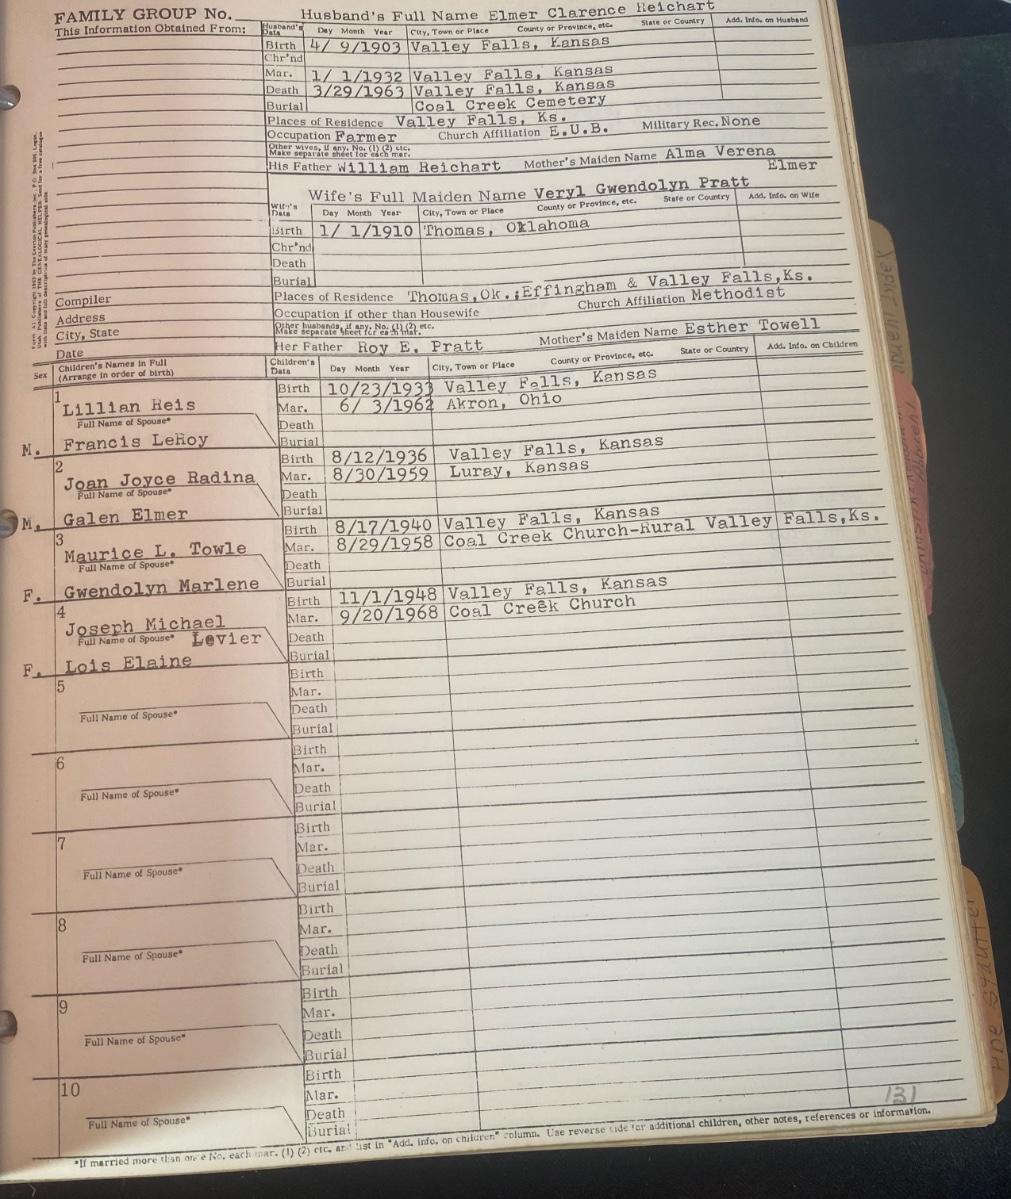 FAMILY GROUP No.
Husband's Full Name Elmer Clarence Reichart
This Information Obtained From:
Husband's Data Day Month Year City, Town or Place County or Province, etc. State or Country Add. Info. on Husband
Birth 4/ 9/1903 Valley Falls, Kansas
Chr'nd
Mar. 1/ 1/1932 Valley Falls, Kansas
Death 3/29/1963 Valley Falls, Kansas
Burial Coal Creek Cemetery
Places of Residence Valley Falls, Ks.
Occupation Farmer Church Affiliation E.U.B. Military Rec. None
Other wives, if any. No. (1) (2) etc.
Make separate sheet for each mar.
His Father William Reichart Mother's Maiden Name Alma Verena
Elmer
Wife's Full Maiden Name Veryl Gwendolyn Pratt
Wife's Data Day Month Year City, Town or Place County or Province, etc. State or Country Add. Info. on Wife
Birth 1/ 1/1910 Thomas, Oklahoma
Chr'nd
Death
Burial
Places of Residence Thomas,Ok.;Effingham & Valley Falls,Ks.
Compiler
Occupation if other than Housewife Church Affiliation Methodist
Address
Other husbands, if any. No. (1) (2) etc.
Make separate sheet for each mar.
City, State
Her Father Roy E. Pratt Mother's Maiden Name Esther Towell
Date
Sex Children's Names in Full
(Arrange in order of birth)
Children's Data Day Month Year City, Town or Place County or Province, etc. State or Country Add. Info. on Children
1 Birth 10/23/1933 Valley Falls, Kansas
Lillian Reis Mar. 6/ 3/1962 Akron, Ohio
Full Name of Spouse* Death
M. Francis LeRoy Burial
2 Birth 8/12/1936 Valley Falls, Kansas
Joan Joyce Radina Mar. 8/30/1959 Luray, Kansas
Full Name of Spouse* Death
M. Galen Elmer Burial
3 Birth 8/17/1940 Valley Falls, Kansas
Maurice L. Towle Mar. 8/29/1958 Coal Creek Church-Rural Valley Falls,Ks.
Full Name of Spouse* Death
F. Gwendolyn Marlene Burial
4 Birth 11/1/1948 Valley Falls, Kansas
Joseph Michael Mar. 9/20/1968 Coal Creek Church
Full Name of Spouse* Levier Death
F. Lois Elaine Burial
5 Birth
Mar.
Full Name of Spouse* Death
Burial
6 Birth
Mar.
Full Name of Spouse* Death
Burial
7 Birth
Mar.
Full Name of Spouse* Death
Burial
8 Birth
Mar.
Full Name of Spouse* Death
Burial
9 Birth
Mar.
Full Name of Spouse* Death
Burial
10 Birth
Mar.
Full Name of Spouse* Death
Burial
131
*If married more than once No. each mar. (1) (2) etc. and list in "Add. info. on children" column. Use reverse side for additional children, other notes, references or information.